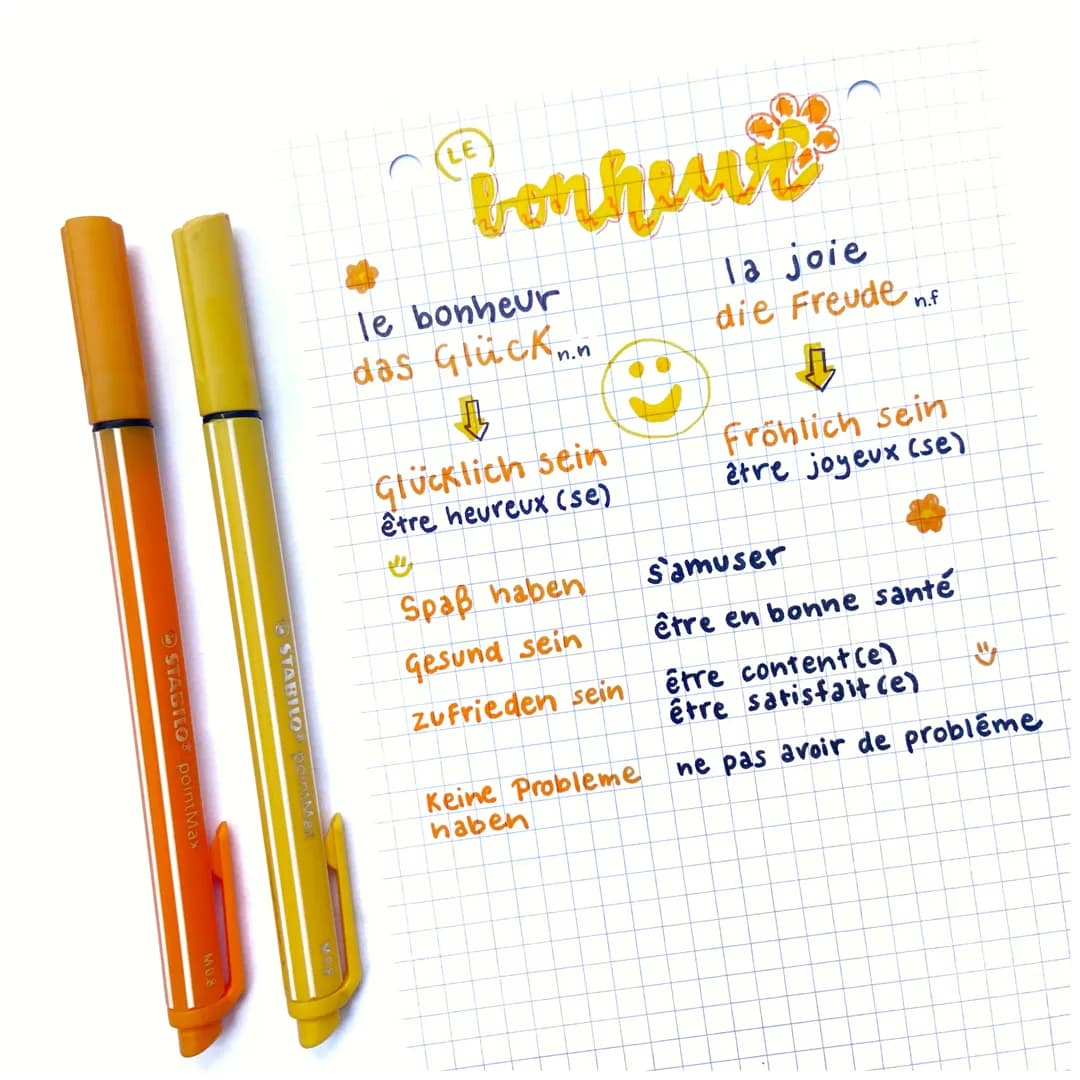 LE
bonheur
le bonheur
das Glück n.n
la joie
die Freude n.f
Glücklich sein
être heureux (se)
Fröhlich sein
être joyeux (se)
Spaß haben
s'amuser
Gesund sein
être en bonne santé
zufrieden sein
être content(e)
être satisfait(e)
Keine Probleme
haben
ne pas avoir de problême
STABILO® pointMax
M 0.8
STABILO® pointMax
M 0.8